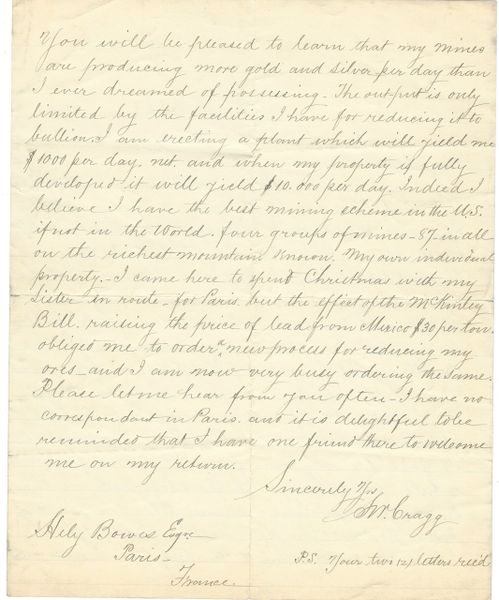 You will be pleased to learn that my mines
are producing more gold and silver per day than
I ever dreamed of possessing. The output is only
limited by the facilities I have for reducing it to
bullion. I am erecting a plant which will yield me
$1000 per day, net, and when my property is fully
developed it will yield $10.000 per day. Indeed I
believe I have the best mining scheme in the U.S.
if not in the World. four groups of mines - 87 in all
on the richest mountain known. My own individual
property. - I came here to spend Christmas with my
sister in route - for Paris. but the effect of the McKinley
Bill. raising the price of lead from Mexico $30 per ton.
obliged me to order a new process for reducing my
ores - and I am now very busy ordering the same.
Please let me hear from you often - I have no
correspondent in Paris. and it is delightful to be
reminded that I have one friend there to welcome
me on my return.
Sincerely Yrs
Cragg
Hely Bowes Esqre
Paris -
France.
P.S. Your two (2) letters rec'd